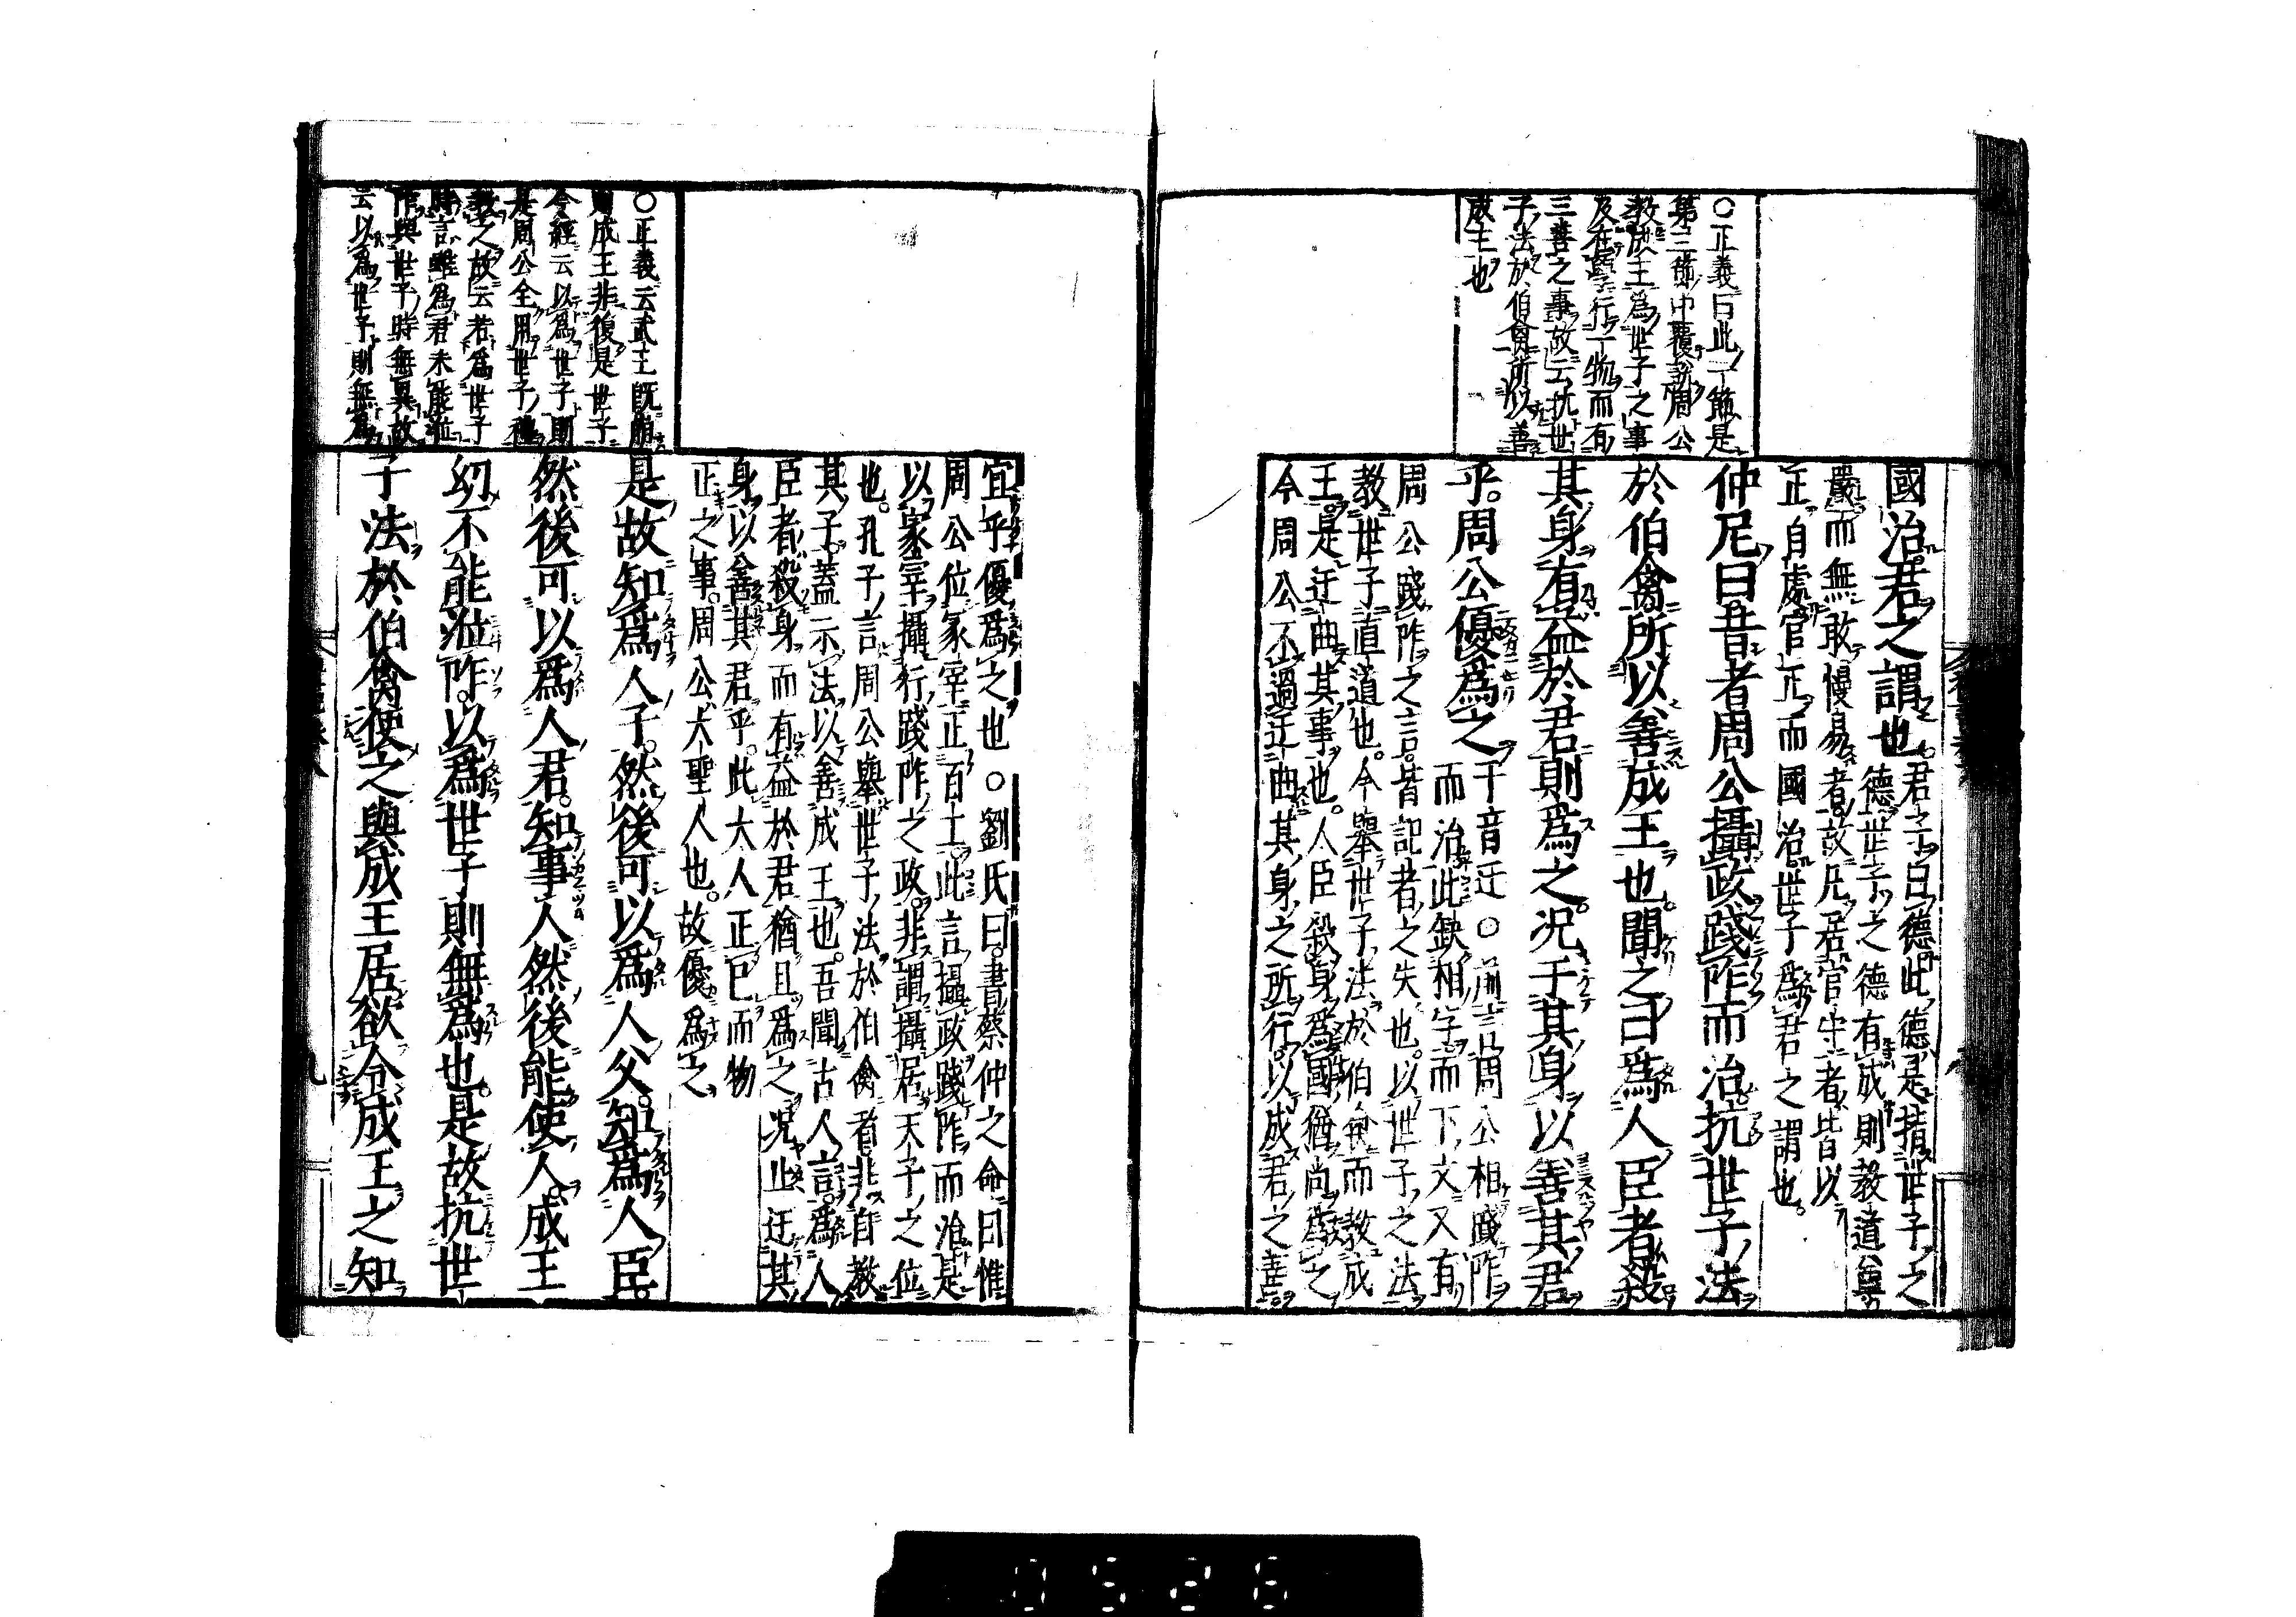 〇正義曰此一節是
第三節中覆說周公
教成王爲世子之事
及在學行一物而有
三善之事故云抗世
子法於伯禽所以善
成王也
國治君之謂也君子曰德此德是指世子之
德世子之德有成則教道尊
嚴而無敢慢易者故凡居官守者皆以
正自處官正而國治世子爲君之謂也
仲尼曰昔者周公攝政踐阼而治抗世子法
於伯禽所以善成王也聞之曰爲人臣者殺
其身有益於君則爲之況于其身以善其君
乎周公優爲之于音迂〇前言周公相踐阼
而治此缺相字而下文又有
周公踐阼之言皆記者之失也以世子之法
教世子直道也今舉世子法於伯禽而教成
王是迂曲其事也人臣殺身爲國猶尚爲之
今周公不過迂曲其身之所行以成君之善
〇正義云武王既崩
則成王非復是世子
今經云以爲世子則
是周公全用世子禮
教之故云若爲世子
時言雖爲君未能涖
阼與世子時無異故
云以爲世子則無爲
宜乎優爲之也〇劉氏曰書蔡仲之命曰惟
周公位冢宰正百工此言攝政踐阼而治是
以冢宰攝行踐阼之政非謂攝居天子之位
也孔子言周公舉世子法於伯禽者非自教
其子蓋示法以善成王也吾聞古人言爲人
臣者殺身而有益於君猶且爲之況止迂其
身以善其君乎此大人正己而物
正之事周公大聖人也故優爲之
是故知爲人子然後可以爲人父知爲人臣
然後可以爲人君知事人然後能使人成王
幼不能涖阼以爲世子則無爲也是故抗世
子法於伯禽使之與成王居欲令成王之知
九
0526